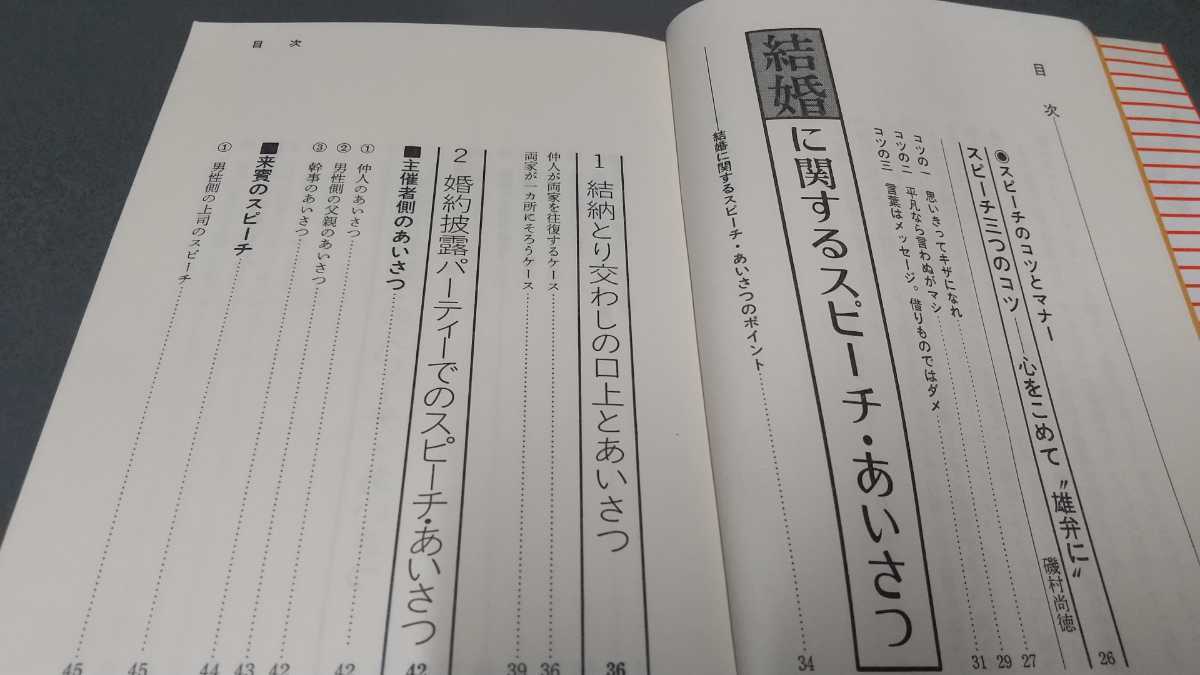 目次
◉スピーチのコツとマナー
スピーチ三つのコツ——心をこめて〝雄弁に〟 磯村尚徳 26
コツの一 思いきってキザになれ 27
コツの二 平凡なら言わぬがマシ 29
コツの三 言葉はメッセージ。借りものではダメ 31
結婚に関するスピーチ・あいさつ
——結婚に関するスピーチ・あいさつのポイント 34
目次
1 結納とり交わしの口上とあいさつ 36
仲人が両家を往復するケース 36
両家が一カ所にそろうケース 39
2 婚約披露パーティーでのスピーチ・あいさつ 42
■主催者側のあいさつ 42
① 仲人のあいさつ 42
② 男性側の父親のあいさつ 43
③ 幹事のあいさつ 44
■来賓のスピーチ 45
① 男性側の上司のスピーチ 45